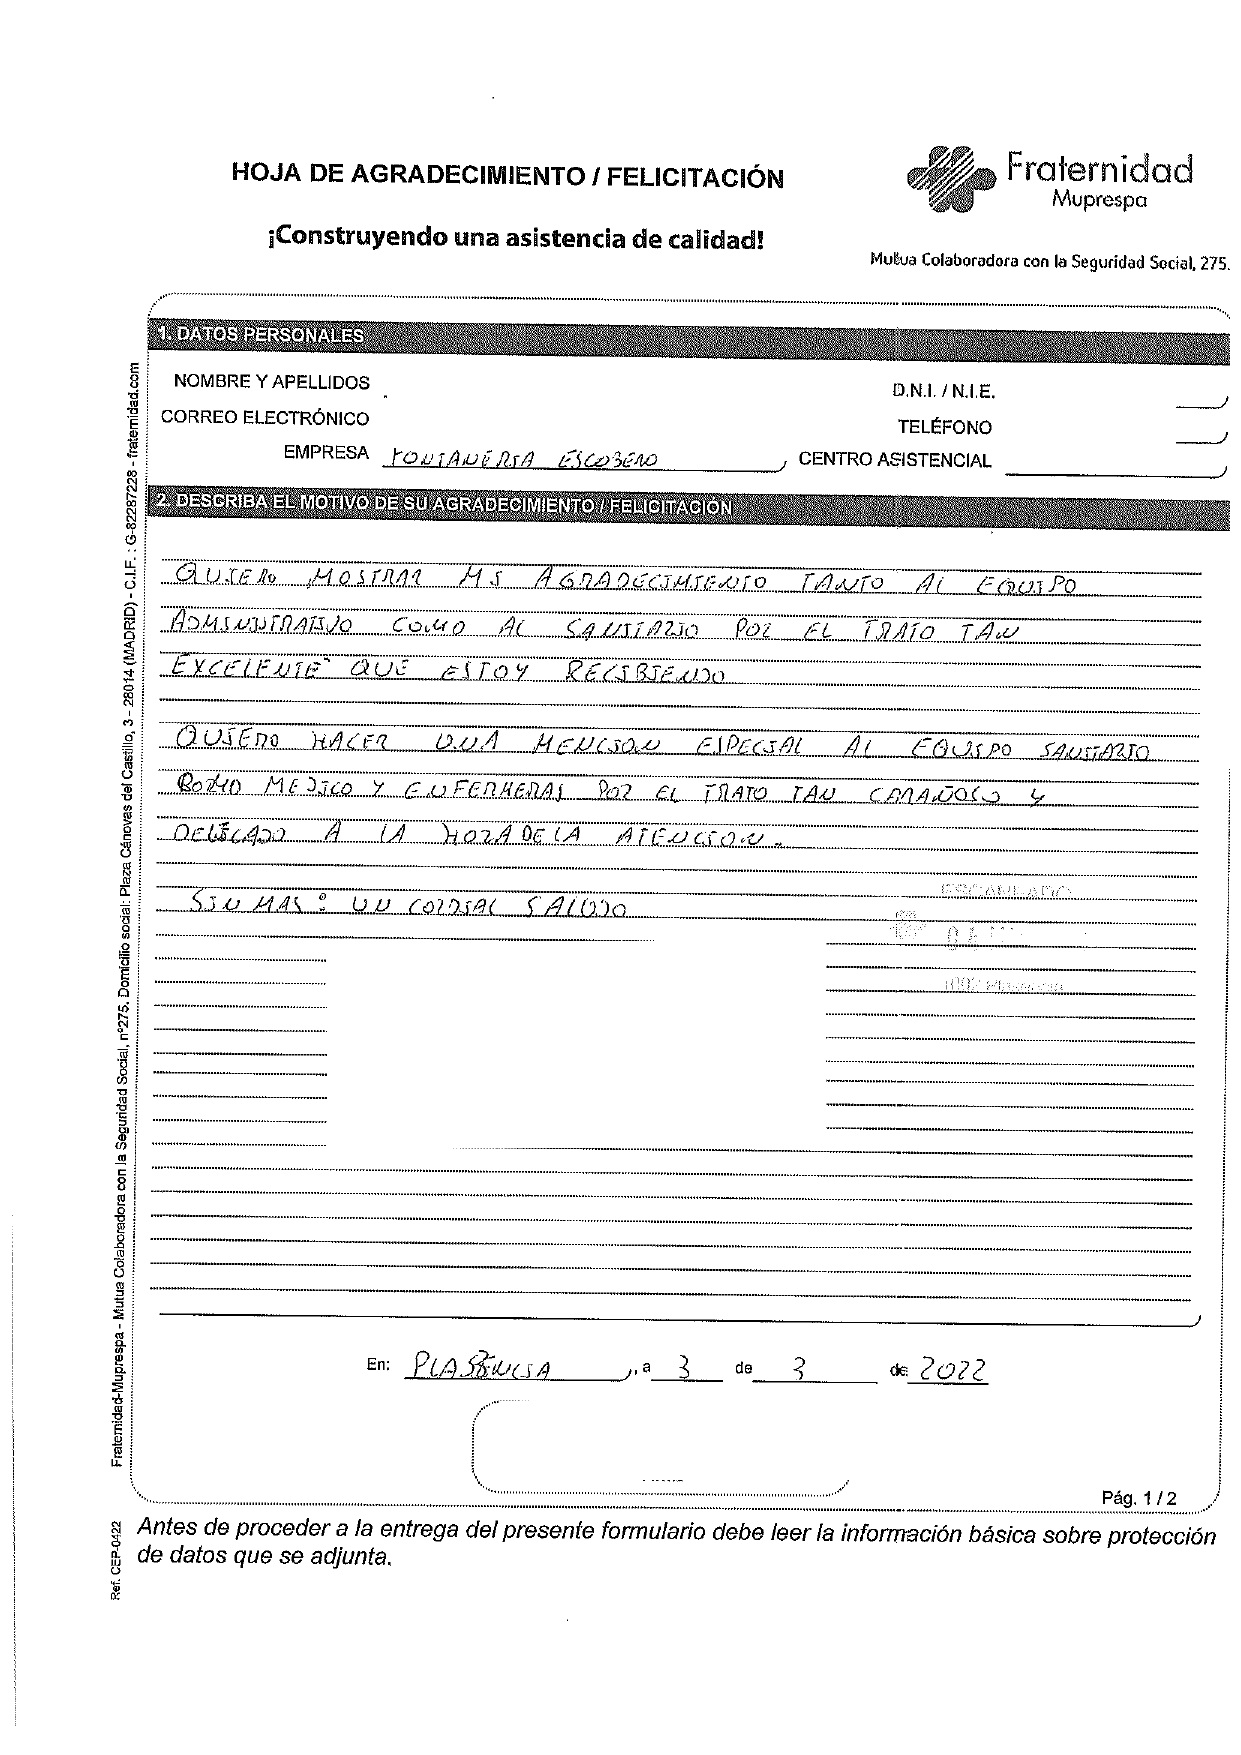 HOJA DE AGRADECIMIENTO / FELICITACIÓN
¡Construyendo una asistencia de calidad!
Fraternidad
Muprespa
Mutua Colaboradora con la Seguridad Social, 275.
1. DATOS PERSONALES
NOMBRE Y APELLIDOS
D.N.I. / N.I.E.
CORREO ELECTRÓNICO
TELÉFONO
EMPRESA FONTANERIA ESCOBERO
CENTRO ASISTENCIAL
2. DESCRIBA EL MOTIVO DE SU AGRADECIMIENTO / FELICITACIÓN
QUIERO MOSTRAR MI AGRADECIMIENTO TANTO AL EQUIPO
ADMINISTRATIVO COMO AL SANITARIO POR EL TRATO TAN
EXCELENTE QUE ESTOY RECIBIENDO
QUIERO HACER UNA MENCION ESPECIAL AL EQUIPO SANITARIO
MEDICO Y ENFERMERAS POR EL TRATO TAN CARAÑOSO Y
DELICADO A LA HORA DE LA ATENCION.
SIN MAS: UN CORDIAL SALUDO
ESCANEADO
En: PLASENCIA, a 3 de 3 de 2022
Pág. 1 / 2
Antes de proceder a la entrega del presente formulario debe leer la información básica sobre protección
de datos que se adjunta.
Fraternidad-Muprespa - Mutua Colaboradora con la Seguridad Social, nº275. Domicilio social: Plaza Cánovas del Castillo, 3 - 28014 (MADRID) - C.I.F. : G-82287228 - fraternidad.com
Ref. CEP-0422